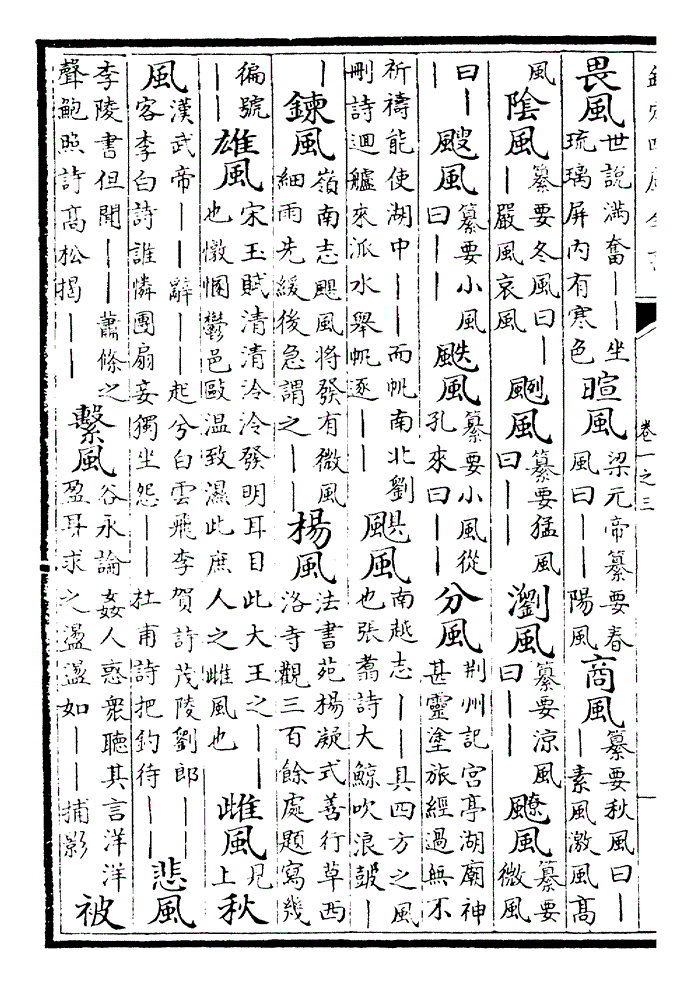 卷一之三
畏風世說滿奮丨丨坐琉璃屏内有寒色暄風梁元帝纂要春風曰丨丨陽風商風纂要秋風曰丨丨素風激風高
風陰風纂要冬風曰丨丨嚴風哀風颲風纂要猛風曰丨丨瀏風纂要涼風曰丨丨飉風纂要微風
曰丨丨丨颼風纂要小風曰丨丨風纂要小風從孔來曰丨丨分風荆州記宮亭湖廟神甚靈塗旅經過無不
祈禱能使湖中丨丨而帆南北劉刪詩迴艫來派水舉帆逐丨丨颶風南越志丨丨具四方之風也張翥詩大鯨吹浪皷丨
丨鍊風嶺南志颶風將發有微風細雨先緩後急謂之丨丨楊風法書苑楊凝式善行草西洛寺觀三百餘處題寫幾
徧號丨丨雄風宋玉賦清清泠泠發明耳目此大王之丨丨也憞惘鬱邑敺温致濕此庶人之雌風也雌風見上秋
風漢武帝丨丨辭丨丨起兮白雲飛李賀詩茂陵劉郎丨丨客李白詩誰憐團扇妾獨坐怨丨丨杜甫詩把釣待丨丨悲風
李陵書但聞丨丨蕭條之聲鮑照詩高松揭丨丨繫風谷永論姦人惑衆聽其言洋洋盈耳求之盪盪如丨丨捕影被